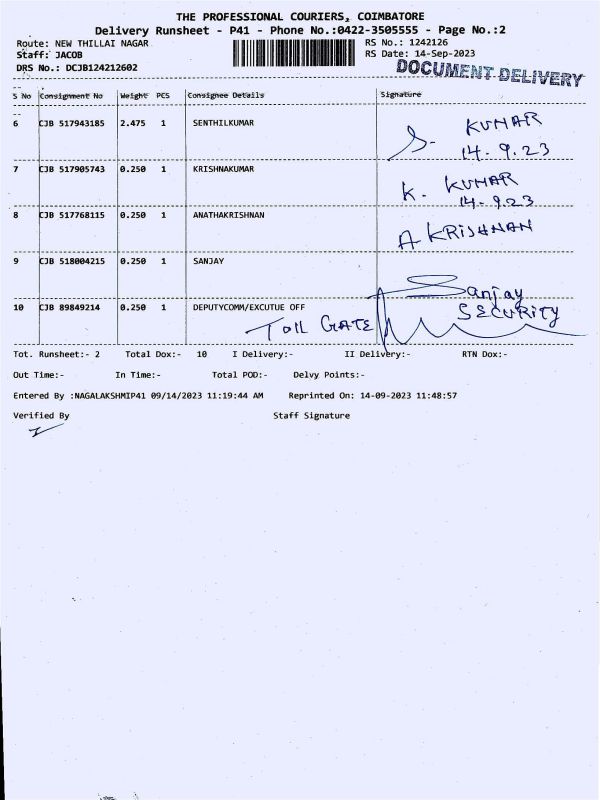 THE PROFESSIONAL COURIERS, COIMBATORE
Delivery Runsheet - P41 - Phone No.:0422-3505555 - Page No.:2
Route: NEW THILLAI NAGAR RS No.: 1242126
Staff: JACOB RS Date: 14-Sep-2023
DRS No.: DCJB124212602 DOCUMENT DELIVERY
S No Consignment No Weight PCS Consignee Details Signature
6 CJB 517943185 2.475 1 SENTHILKUMAR S. KUMAR
14.9.23
7 CJB 517905743 0.250 1 KRISHNAKUMAR K. KUMAR
14.9.23
8 CJB 517768115 0.250 1 ANATHAKRISHNAN A KRISHNAN
9 CJB 518004215 0.250 1 SANJAY Sanjay
10 CJB 89849214 0.250 1 DEPUTYCOMM/EXCUTUE OFF SECURITY
Toll GATE
Tot. Runsheet:- 2 Total Dox:- 10 I Delivery:- II Delivery:- RTN Dox:-
Out Time:- In Time:- Total POD:- Delvy Points:-
Entered By :NAGALAKSHMIP41 09/14/2023 11:19:44 AM Reprinted On: 14-09-2023 11:48:57
Verified By Staff Signature